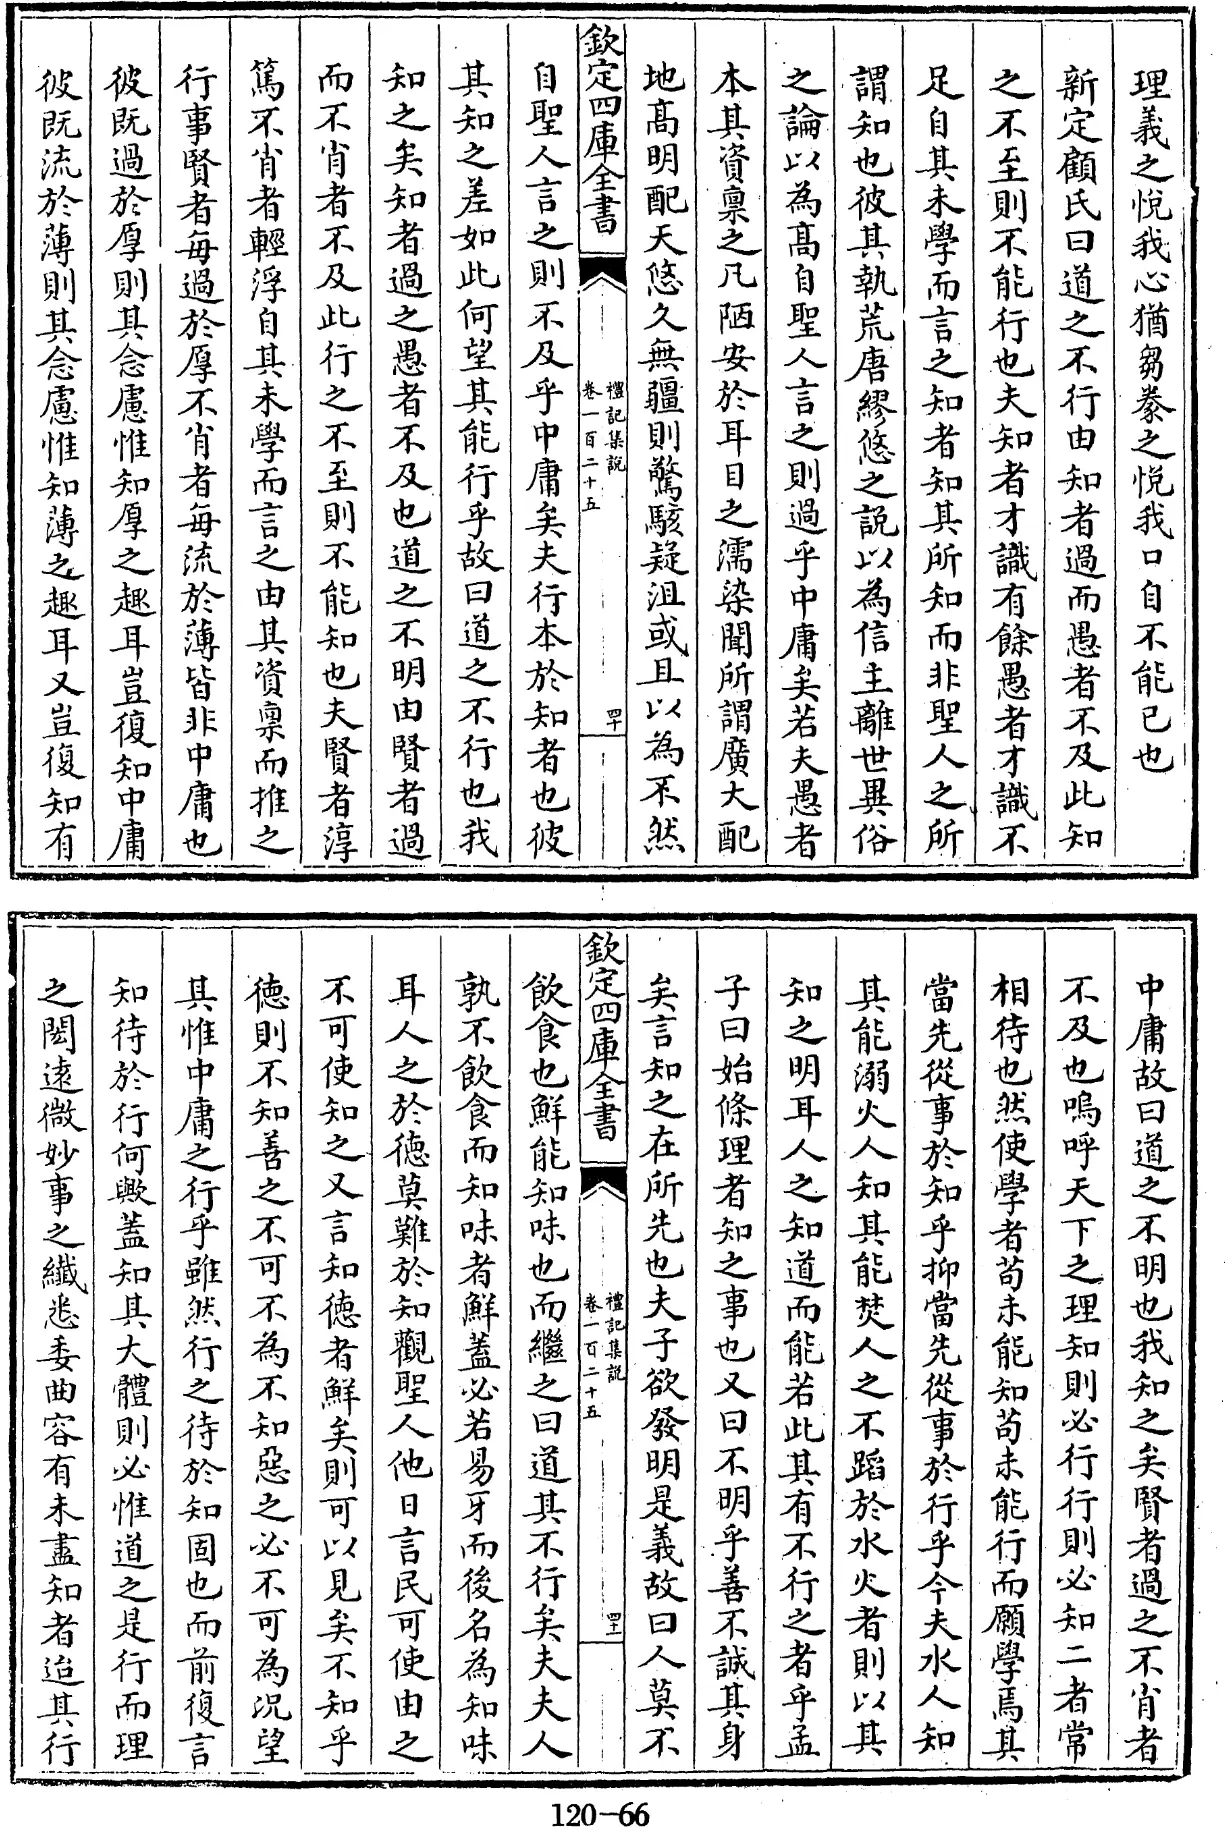 理義之悅我心猶芻豢之悅我口自不能已也
新定顧氏曰道之不行由知者過而愚者不及此知
之不至則不能行也夫知者才識有餘愚者才識不
足自其未學而言之知者知其所知而非聖人之所
謂知也彼其執荒唐繆悠之說以為信主離世異俗
之論以為髙自聖人言之則過乎中庸矣若夫愚者
本其資禀之凡陋安於耳目之濡染聞所謂廣大配
地髙明配天悠久無疆則驚駭疑沮或且以為不然
欽定四庫全書
禮記集說
卷一百二十五
四十
自聖人言之則不及乎中庸矣夫行本於知者也彼
其知之差如此何望其能行乎故曰道之不行也我
知之矣知者過之愚者不及也道之不明由賢者過
而不肖者不及此行之不至則不能知也夫賢者淳
篤不肖者輕浮自其未學而言之由其資禀而推之
行事賢者每過於厚不肖者每流於薄皆非中庸也
彼既過於厚則其念慮惟知厚之趣耳豈復知中庸
彼既流於薄則其念慮惟知薄之趣耳又豈復知有
中庸故曰道之不明也我知之矣賢者過之不肖者
不及也嗚呼天下之理知則必行行則必知二者常
相待也然使學者苟未能知苟未能行而願學焉其
當先從事於知乎抑當先從事於行乎今夫水人知
其能溺火人知其能焚人之不蹈於水火者則以其
知之明耳人之知道而能若此其有不行之者乎孟
子曰始條理者知之事也又曰不明乎善不誠其身
矣言知之在所先也夫子欲發明是義故曰人莫不
欽定四庫全書
禮記集說
卷一百二十五
四十一
飲食也鮮能知味也而繼之曰道其不行矣夫夫人
孰不飲食而知味者鮮蓋必若易牙而後名為知味
耳人之於德莫難於知觀聖人他日言民可使由之
不可使知之又言知德者鮮矣則可以見矣不知乎
德則不知善之不可不為不知惡之必不可為況望
其惟中庸之行乎雖然行之待於知固也而前復言
知待於行何歟蓋知其大體則必惟道之是行而理
之閎遠微妙事之纎悉委曲容有未盡知者迨其行
120-66